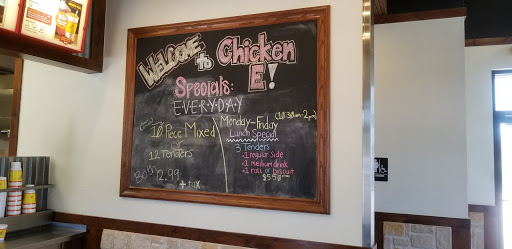 Welcome to Chicken E!
Specials:
EVERYDAY
10 Piece Mixed
12 Tenders
+ tax
Monday-Friday (10:30am-2pm)
Lunch Special
3 Tenders
•1 regular side
•1 medium drink
•1 roll or biscuit
$5.59